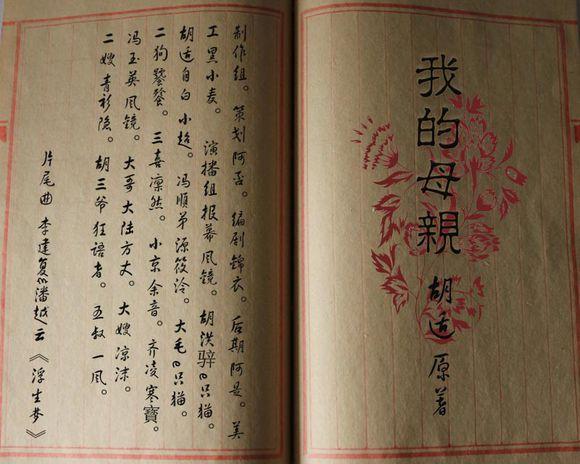 我的母親 胡适 原著
制作组。策划阿否。编剧锦衣。后期阿是。美
工黑小麦。演播组报幕风镜。胡洪骍四只猫。
胡适自白小超。冯顺弟源筱泠。大毛四只猫。
二狗饕餮。三喜凛然。小京余音。齐凌寒寶。
冯玉英风镜。大哥大陆方丈。大嫂凉沫。
二嫂青衫隐。胡三爷狂语者。五叔一风。
片尾曲李建复&潘越云《浮生梦》